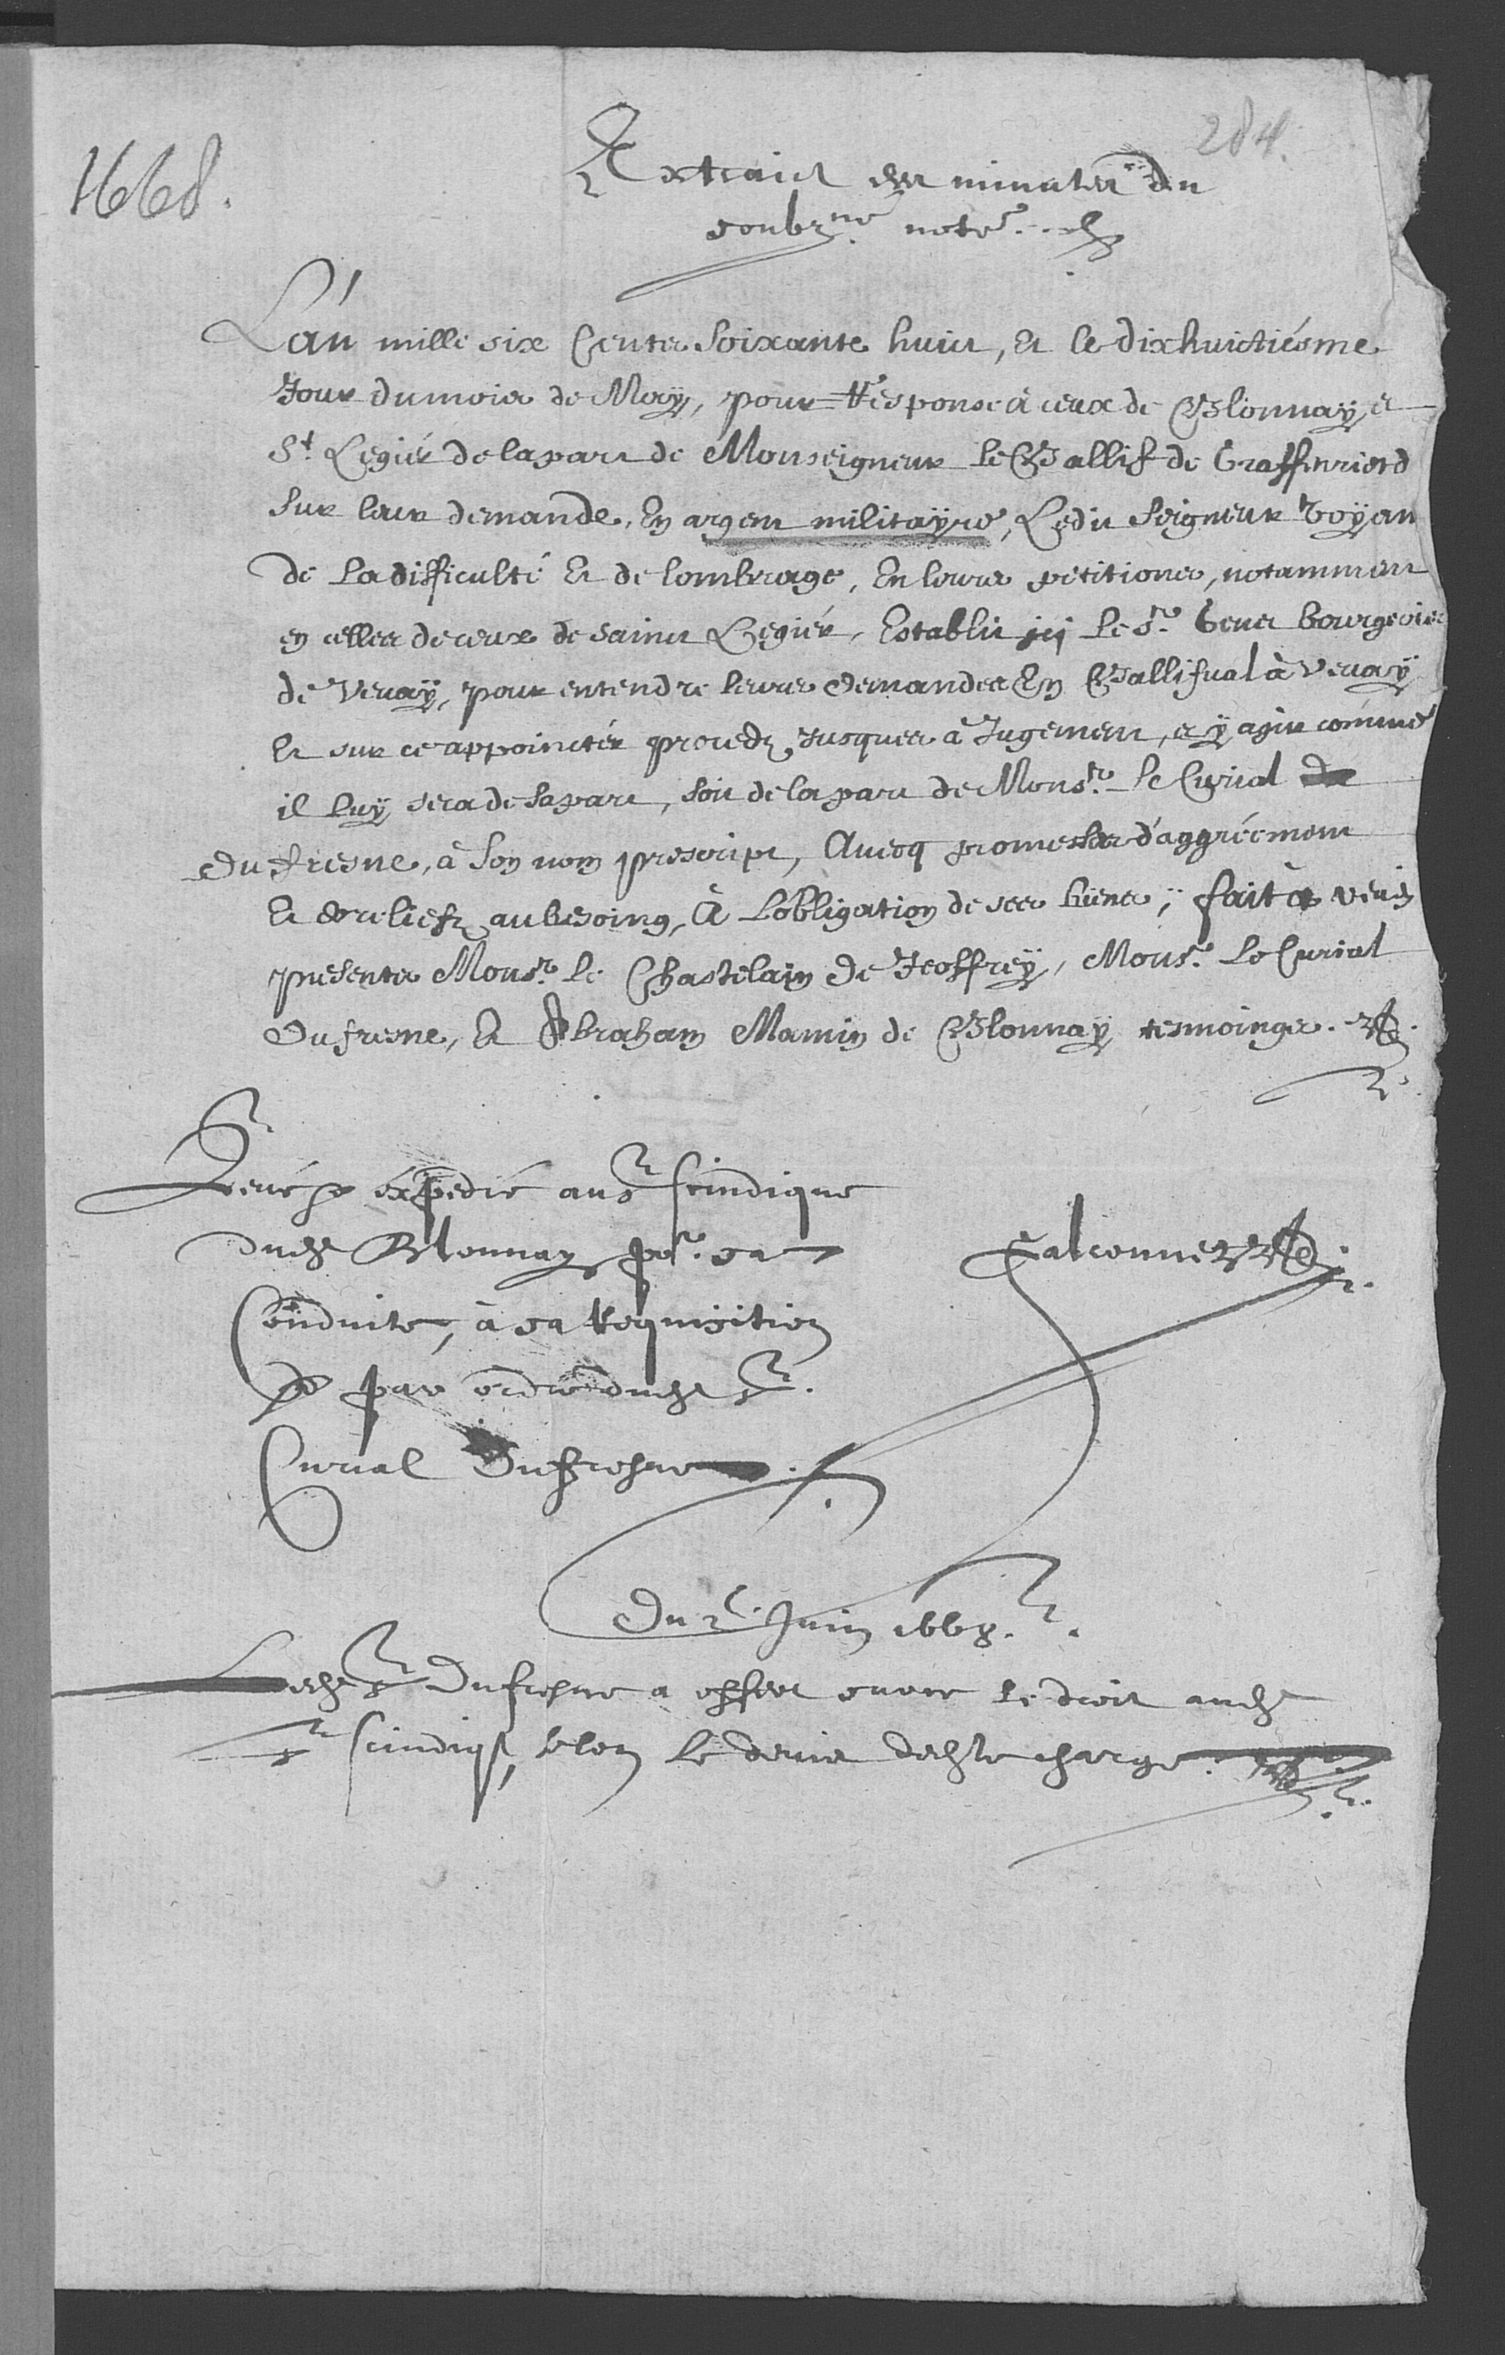 284.
1668.
Extraict des minutes du
soubz.né not.re
L'an mille six Cents Soixante huict, Et le dixhuictiésme
Jour du mois de Maÿ, pour Response à ceux de Blonnaÿ et
S.t Legiér de la part de Monseigneur le Ballif de Graffenriedt
Sur leur demande, En argent militaÿre, Ledit Seigneur Voÿant
de la difficulté Et de lombrage, En leurs petitions, notamment
en celles de ceux de Sainct Legiér, Establit ici le S.r Genet bourgeois
de Veuaÿ, pour entendre leurs demandes En Ballifual à Veuaÿ
Et sur ce appoinctér procedr Jusques à Jugement, et ÿ agir comme
il luÿ sera de sa part, soit de la part de Mons.r le Curial
Du fresne, à son nom prescript, Auecq promesses d'aggréement
Et de relief, au besoing, À L'obligation de ses biens, fait à Veueÿ
presents Mons.r le Chastelain de Jeoffreÿ, Mons.r Le Curial
Du fresne, Et Abraham Mamin de Blonnaÿ tesmoings.
Leué et éxpedié au S.r Scindique
dudt Blonnay po.r sa
Conduite, à sa Requisition
et par ordre dudt S.r
Curial Dufresne
Falconnet
Du 2.e Juin 1668.
Ledt S.r Dufresne a offert suure le droit audt
S.r Scindiq, selon le deuis de dte charge.